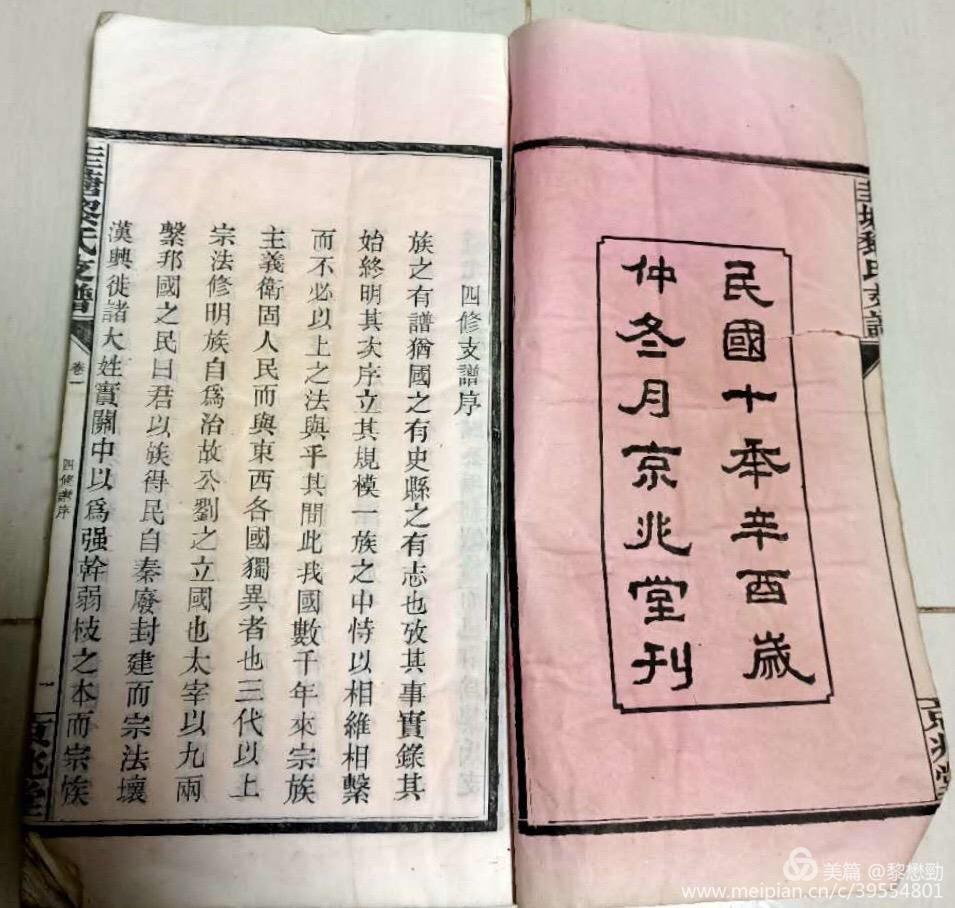 民國十年辛酉歲
仲冬月京兆堂刊
京兆堂
四修支譜序
族之有譜猶國之有史縣之有志也攷其事實錄其
始終明其次序立其規模一族之中恃以相維相繫
而不必以上之法與乎其間此我國數千年來宗族
主義衛固人民而與東西各國獨異者也三代以上
宗法修明族自爲治故公劉之立國也太宰以九兩
繫邦國之民曰君以族得民自秦廢封建而宗法壞
漢興徙諸大姓實關中以爲强幹弱枝之本而宗族
黎氏支譜
卷一
四修譜序
一
京兆堂
美篇 @黎懋勁
www.meipian.cn/c/39554801